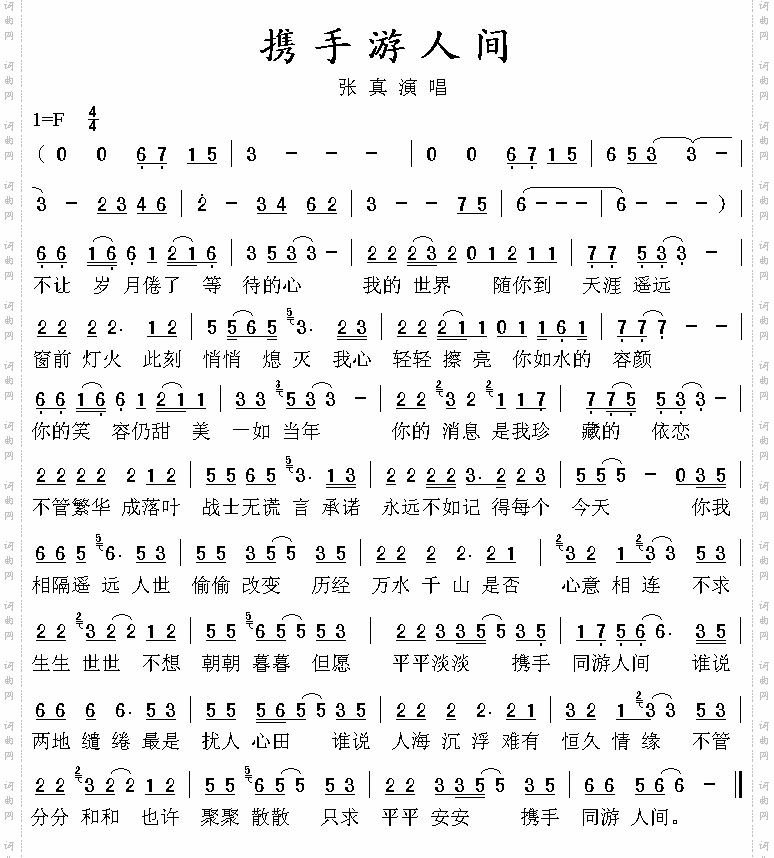 携手游人间
张真演唱
1=F 4/4
( 0 0 6 7 1 5 | 3 - - - | 0 0 6 7 1 5 | 6 5 3 3 - |
3 - 2 3 4 6 | 2 - 3 4 6 2 | 3 - - 7 5 | 6 - - - | 6 - - - ) |
6 6 1 6 6 1 2 1 6 | 3 5 3 3 - | 2 2 2 3 2 0 1 2 1 1 | 7 7 5 3 3 - |
不让 岁 月倦了 等 待的心 我的 世界 随你到 天涯 遥远
2 2 2 2. 1 2 | 5 5 6 5 5 3. 2 3 | 2 2 2 1 1 0 1 1 6 1 | 7 7 7 - - |
窗前 灯火 此刻 悄悄 熄 灭 我心 轻轻 擦 亮 你如水的 容颜
6 6 1 6 6 1 2 1 1 | 3 3 3 5 3 3 - | 2 2 2 3 2 2 1 1 7 | 7 7 5 5 3 3 - |
你的笑 容仍甜 美 一如 当年 你的 消息 是我珍 藏的 依恋
2 2 2 2 2 1 2 | 5 5 6 5 5 3. 1 3 | 2 2 2 2 3. 2 2 3 | 5 5 5 - 0 3 5 |
不管繁华 成落叶 战士无谎 言 承诺 永远不如记 得每个 今天 你我
6 6 5 5 6. 5 3 | 5 5 3 5 5 3 5 | 2 2 2 2. 2 1 | 2 3 2 1 2 3 3 5 3 |
相隔遥 远 人世 偷偷 改变 历经 万水 千 山 是否 心意 相 连 不求
2 2 2 3 2 2 1 2 | 5 5 5 6 5 5 5 3 | 2 2 2 3 3 5 5 3 5 | 1 7 5 6 6. 3 5 |
生生 世世 不想 朝朝 暮暮 但愿 平平淡淡 携手 同游人间 谁说
6 6 6 6. 5 3 | 5 5 5 6 5 5 3 5 | 2 2 2 2. 2 1 | 3 2 1 2 3 3 5 3 |
两地 缱 绻 最是 扰人 心田 谁说 人海 沉 浮 难有 恒久 情 缘 不管
2 2 2 3 2 2 1 2 | 5 5 5 6 5 5 5 3 | 2 2 2 3 3 5 5 3 5 | 6 6 5 6 6 - ‖
分分 和和 也许 聚聚 散散 只求 平平 安安 携手 同游 人间。